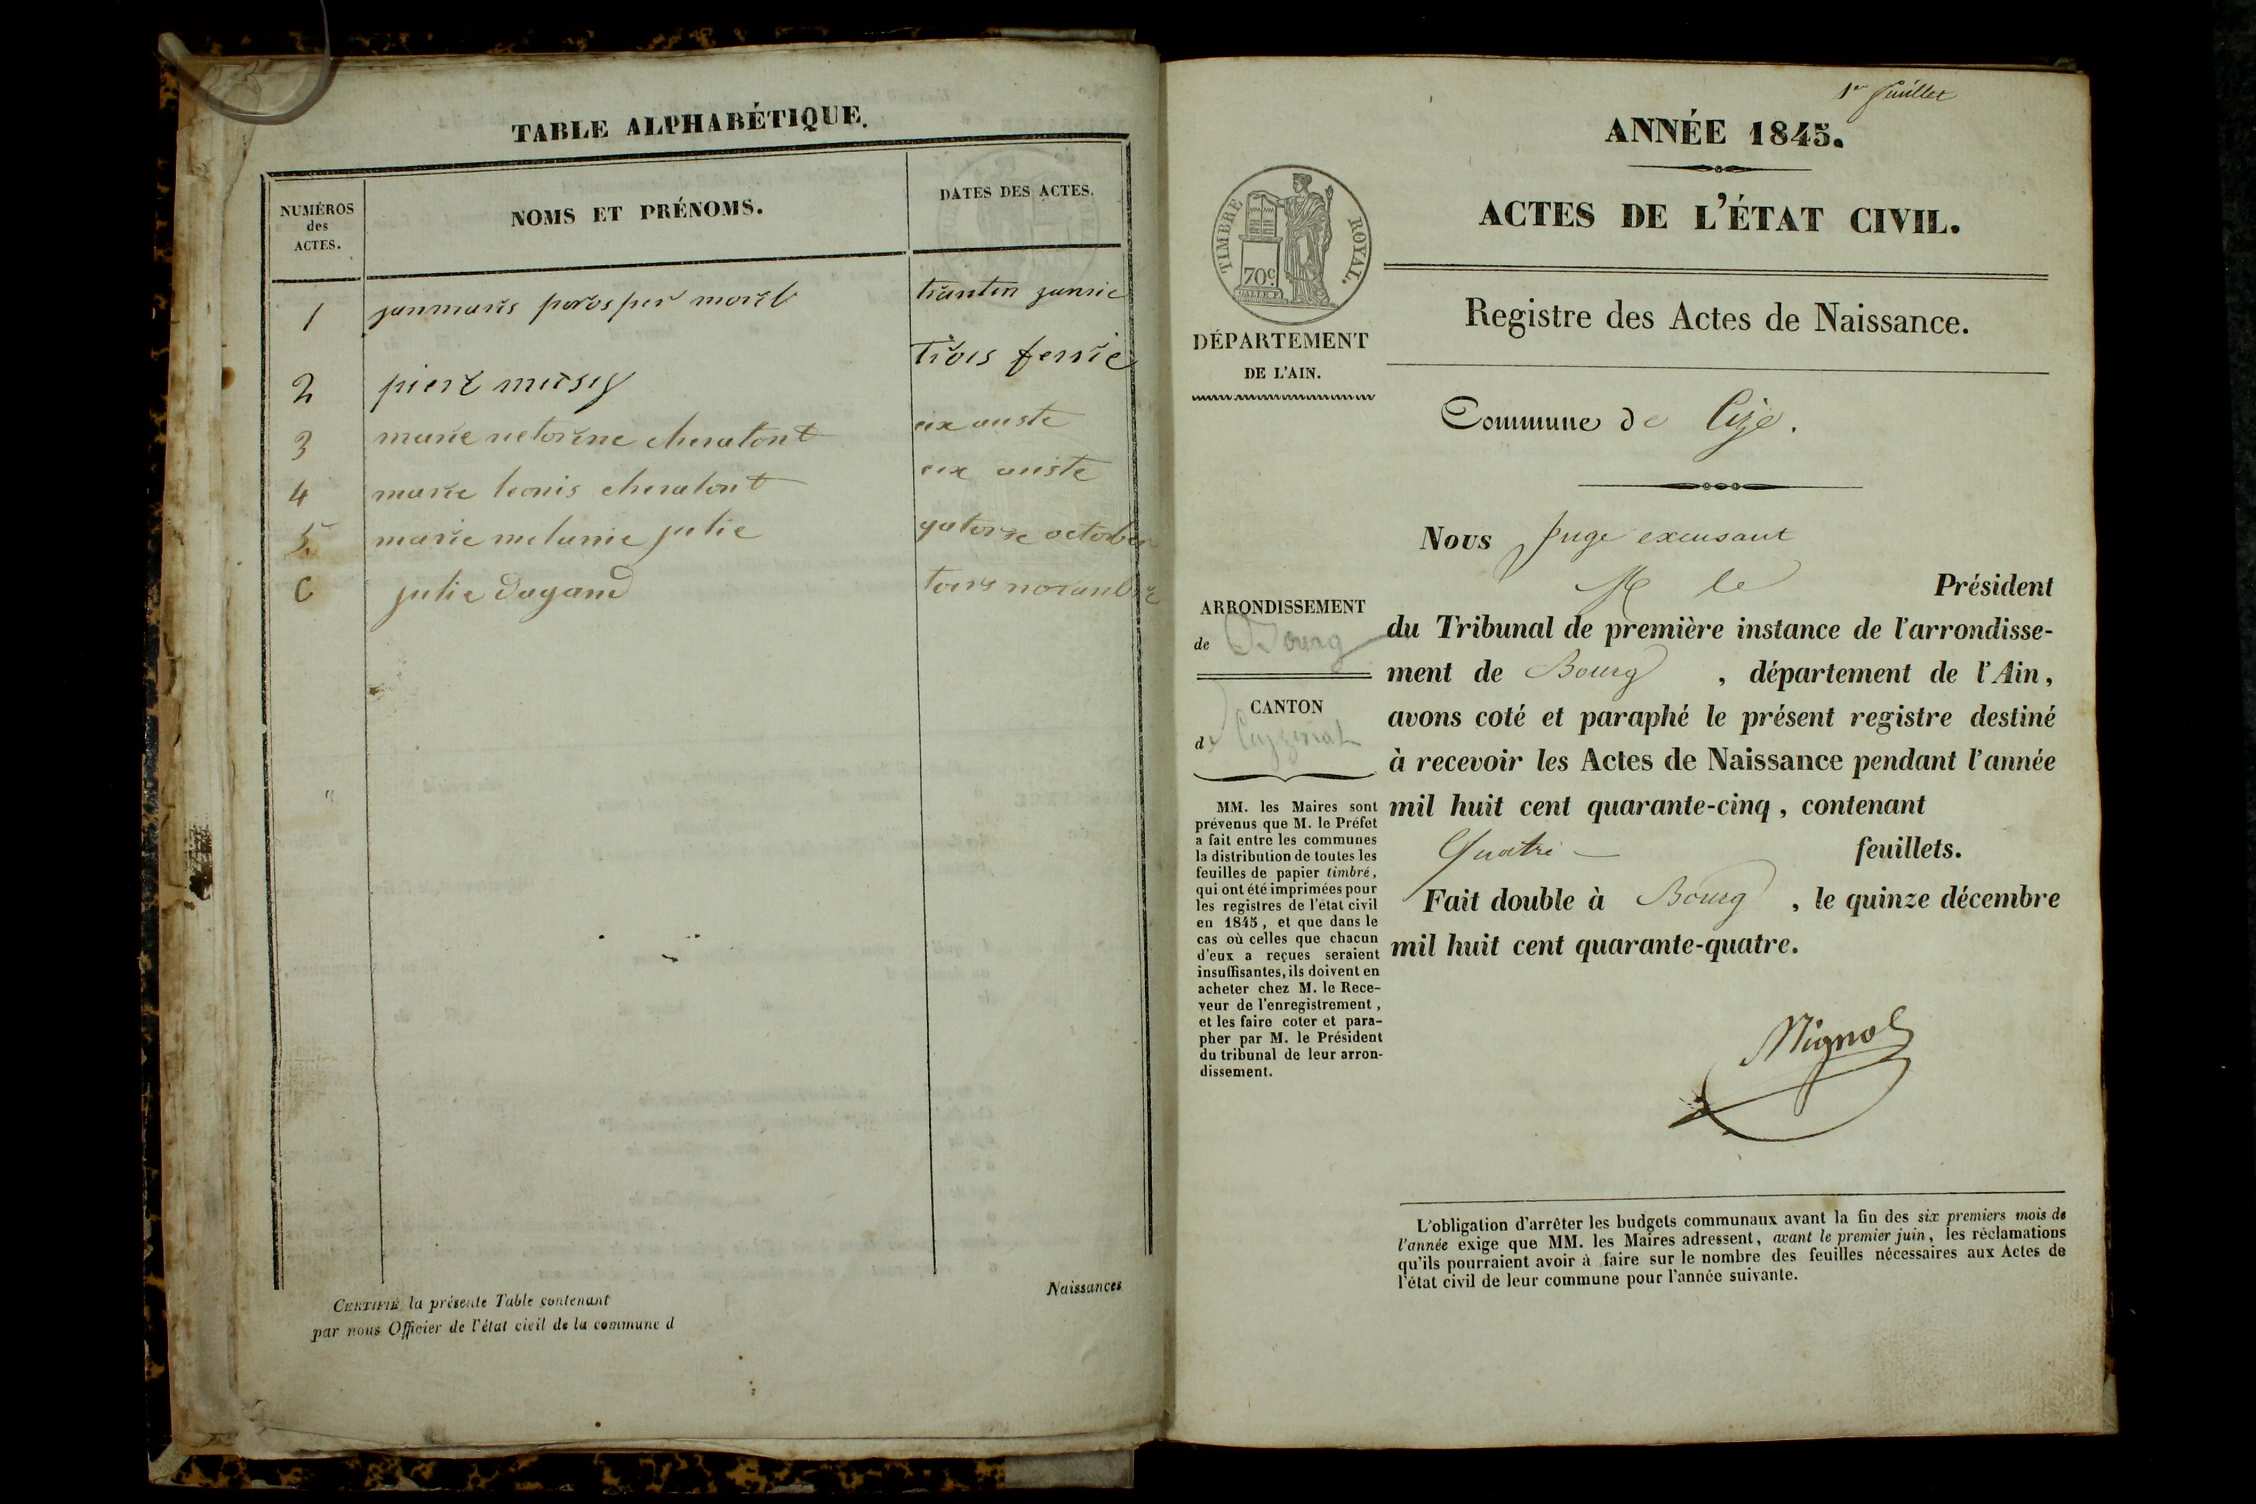 TABLE ALPHABÉTIQUE.
NUMÉROS
des
ACTES.
NOMS ET PRÉNOMS.
DATES DES ACTES.
1 janmaris prosper morel
2 trois
3 marie cheratont
4 marie leonis cheratont
5 marie melanie julie gatorze octobre
6 julie Dagand
CERTIFIÉ la présente Table contenant
Naissances
par nous Officier de l'état civil de la commune d
1er feuillet
ANNÉE 1845.
ACTES DE L'ÉTAT CIVIL.
TIMBRE ROYAL.
70c.
DÉPARTEMENT
DE L'AIN.
Registre des Actes de Naissance.
Commune de Cize.
Nous Juge excusant
M le Président
du Tribunal de première instance de l'arrondisse-
ment de Bourg , département de l'Ain,
avons coté et paraphé le présent registre destiné
à recevoir les Actes de Naissance pendant l'année
mil huit cent quarante-cinq, contenant
Quatre feuillets.
Fait double à Bourg , le quinze décembre
mil huit cent quarante-quatre.
Mignot
ARRONDISSEMENT
de Bourg
CANTON
de Ceyzeriat
MM. les Maires sont
prévenus que M. le Préfet
a fait entre les communes
la distribution de toutes les
feuilles de papier timbré,
qui ont été imprimées pour
les registres de l'état civil
en 1845, et que dans le
cas où celles que chacun
d'eux a reçues seraient
insuffisantes, ils doivent en
acheter chez M. le Rece-
veur de l'enregistrement,
et les faire coter et para-
pher par M. le Président
du tribunal de leur arron-
dissement.
L'obligation d'arrêter les budgets communaux avant la fin des six premiers mois de
l'année exige que MM. les Maires adressent, avant le premier juin, les réclamations
qu'ils pourraient avoir à faire sur le nombre des feuilles nécessaires aux Actes de
l'état civil de leur commune pour l'année suivante.